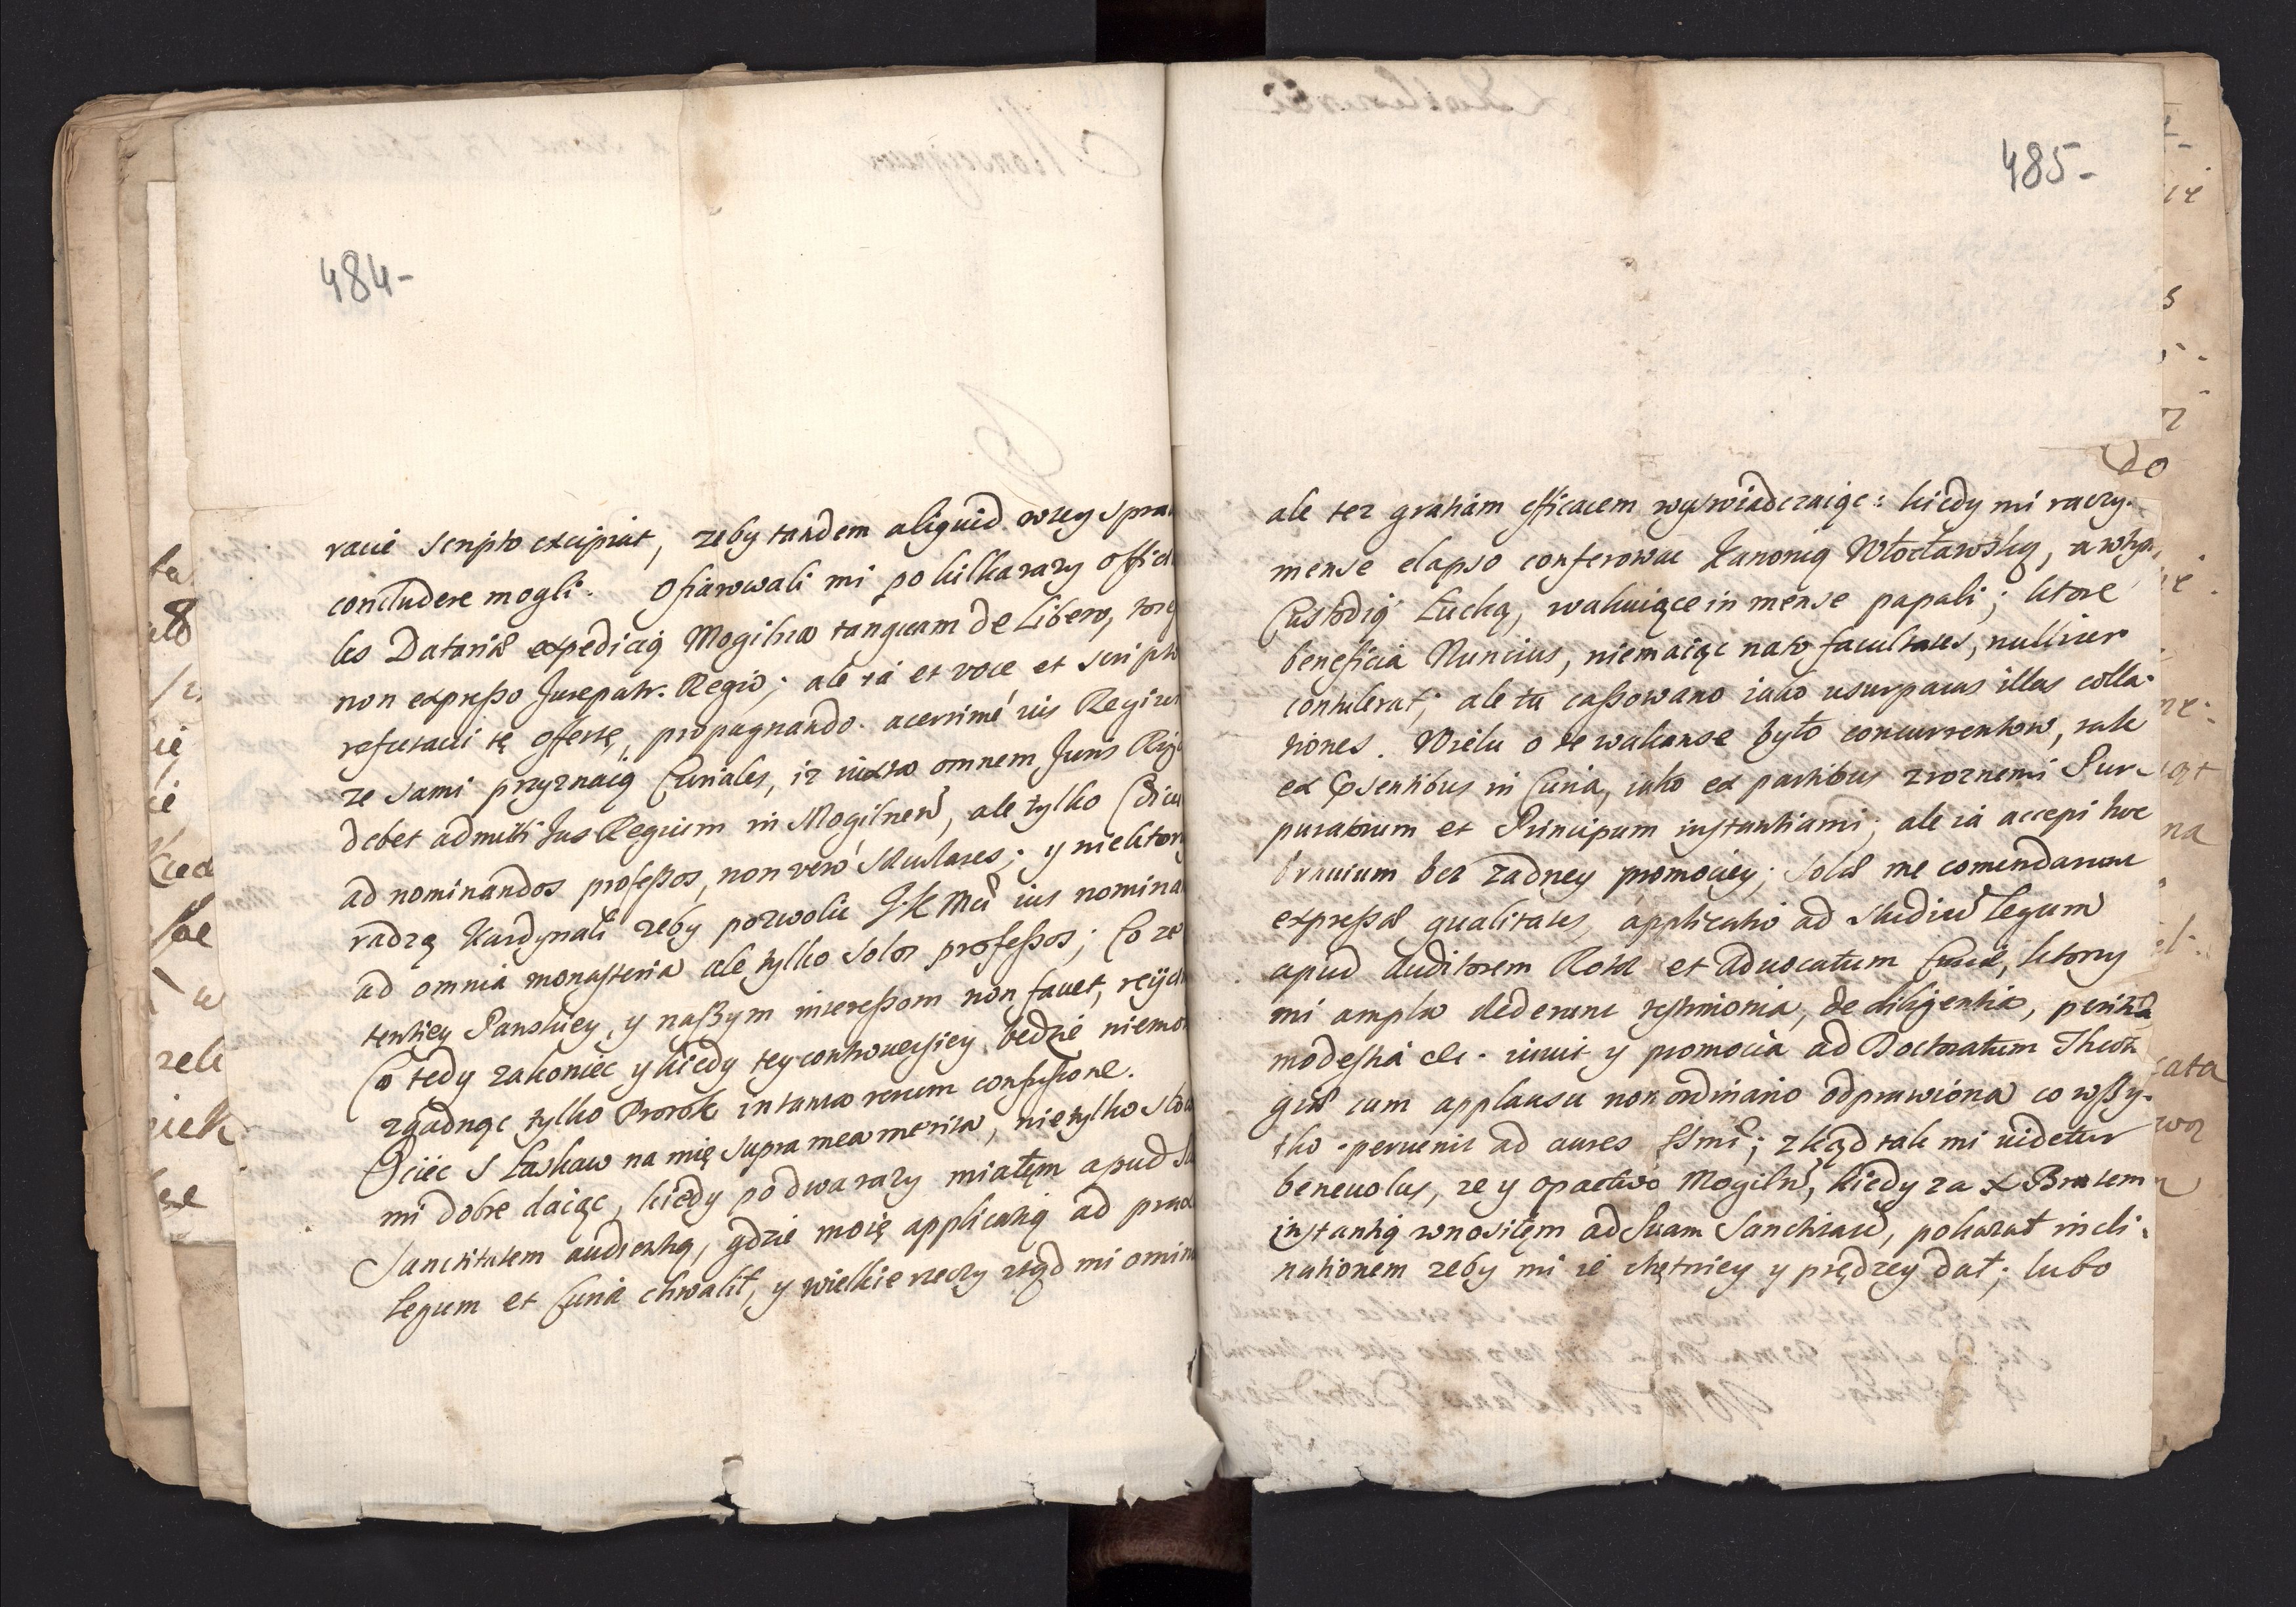 484-
racie scripto excipiat, zeby tandem aliquid wtey spra
concludere mogli. Ofiarowali mi po kilka razy offici
les Datariæ expedicią Mogilna tanquam de Libero,
non expresso Jurepatr. Regio; ale ia et voce et scripto
refutavi tę offertę, propugnando acerrimé ius Regium
ze sami przyznaią Curiales, iz iuxta omnem Juris
debet admitti Jus Regium in Mogilnen, ale tylko
ad nominandos professos, non veró sæculares; y niektorzy
radzą Kardynali zeby pozwolic J K Mci ius nomina
ad omnia monasteria ale tylko solos professos; Co ze
tentiey Panskiey, y naszym interessom non favet,
Co tedy zakoniec y kiedy tey controversiey będzie niemo
zgadnąc tylko Prorok in tanta rerum confusione.
Ociec S łaskaw na mię supra mea merita, nietylko
mi dobre daiąc, kiedy po dwa razy miałęm apud
Sanctitatem audientią, gdzie moię applicatią ad
legum et Curiæ chwalił, y wielkie rzeczy ztąd mi omin
485-
ale tez gratiam efficacem wyswiadczaiąc: kiedy mi raczy-
mense elapso conferowac Kanonią Włocławską, a
Custodią Łucką, wakuiące in mense papali; ktore
beneficia Nuncius, niemaiąc nato facultates, nulliter
contulerat; ale tu cassowano iako usurpatas illas colla-
tiones. Wielu o te wakanse było concurrentow, tak
ex præsentibus in Curia, iako ex partibus z roznemi Pur-
puratorum et Principum instantiami; ale ia accepi hoc
bravium bez zadney promociey; solæ me comendarunt
expressæ qualitates, applicatio ad studiũ legum
apud Auditorem Rotæ et Advocatum Curiæ, ktorzy
mi ampla dederunt testimonia, de diligentia, peritia
modestia etc. iuvit y promocia ad Doctoratum Theolo
giæ cum applausu non ordinario odprawiona co wszy-
tko pervenit ad aures SSmi; zkąd tak mi videtur
benevolus, ze y opactwo Mogiln, kiedy za X Bratem
instantią wnosiłęm ad Suam Sanctitatẽ, pokazał incli-
nationem zeby mi ie chętniey y prędzey dał; lubo